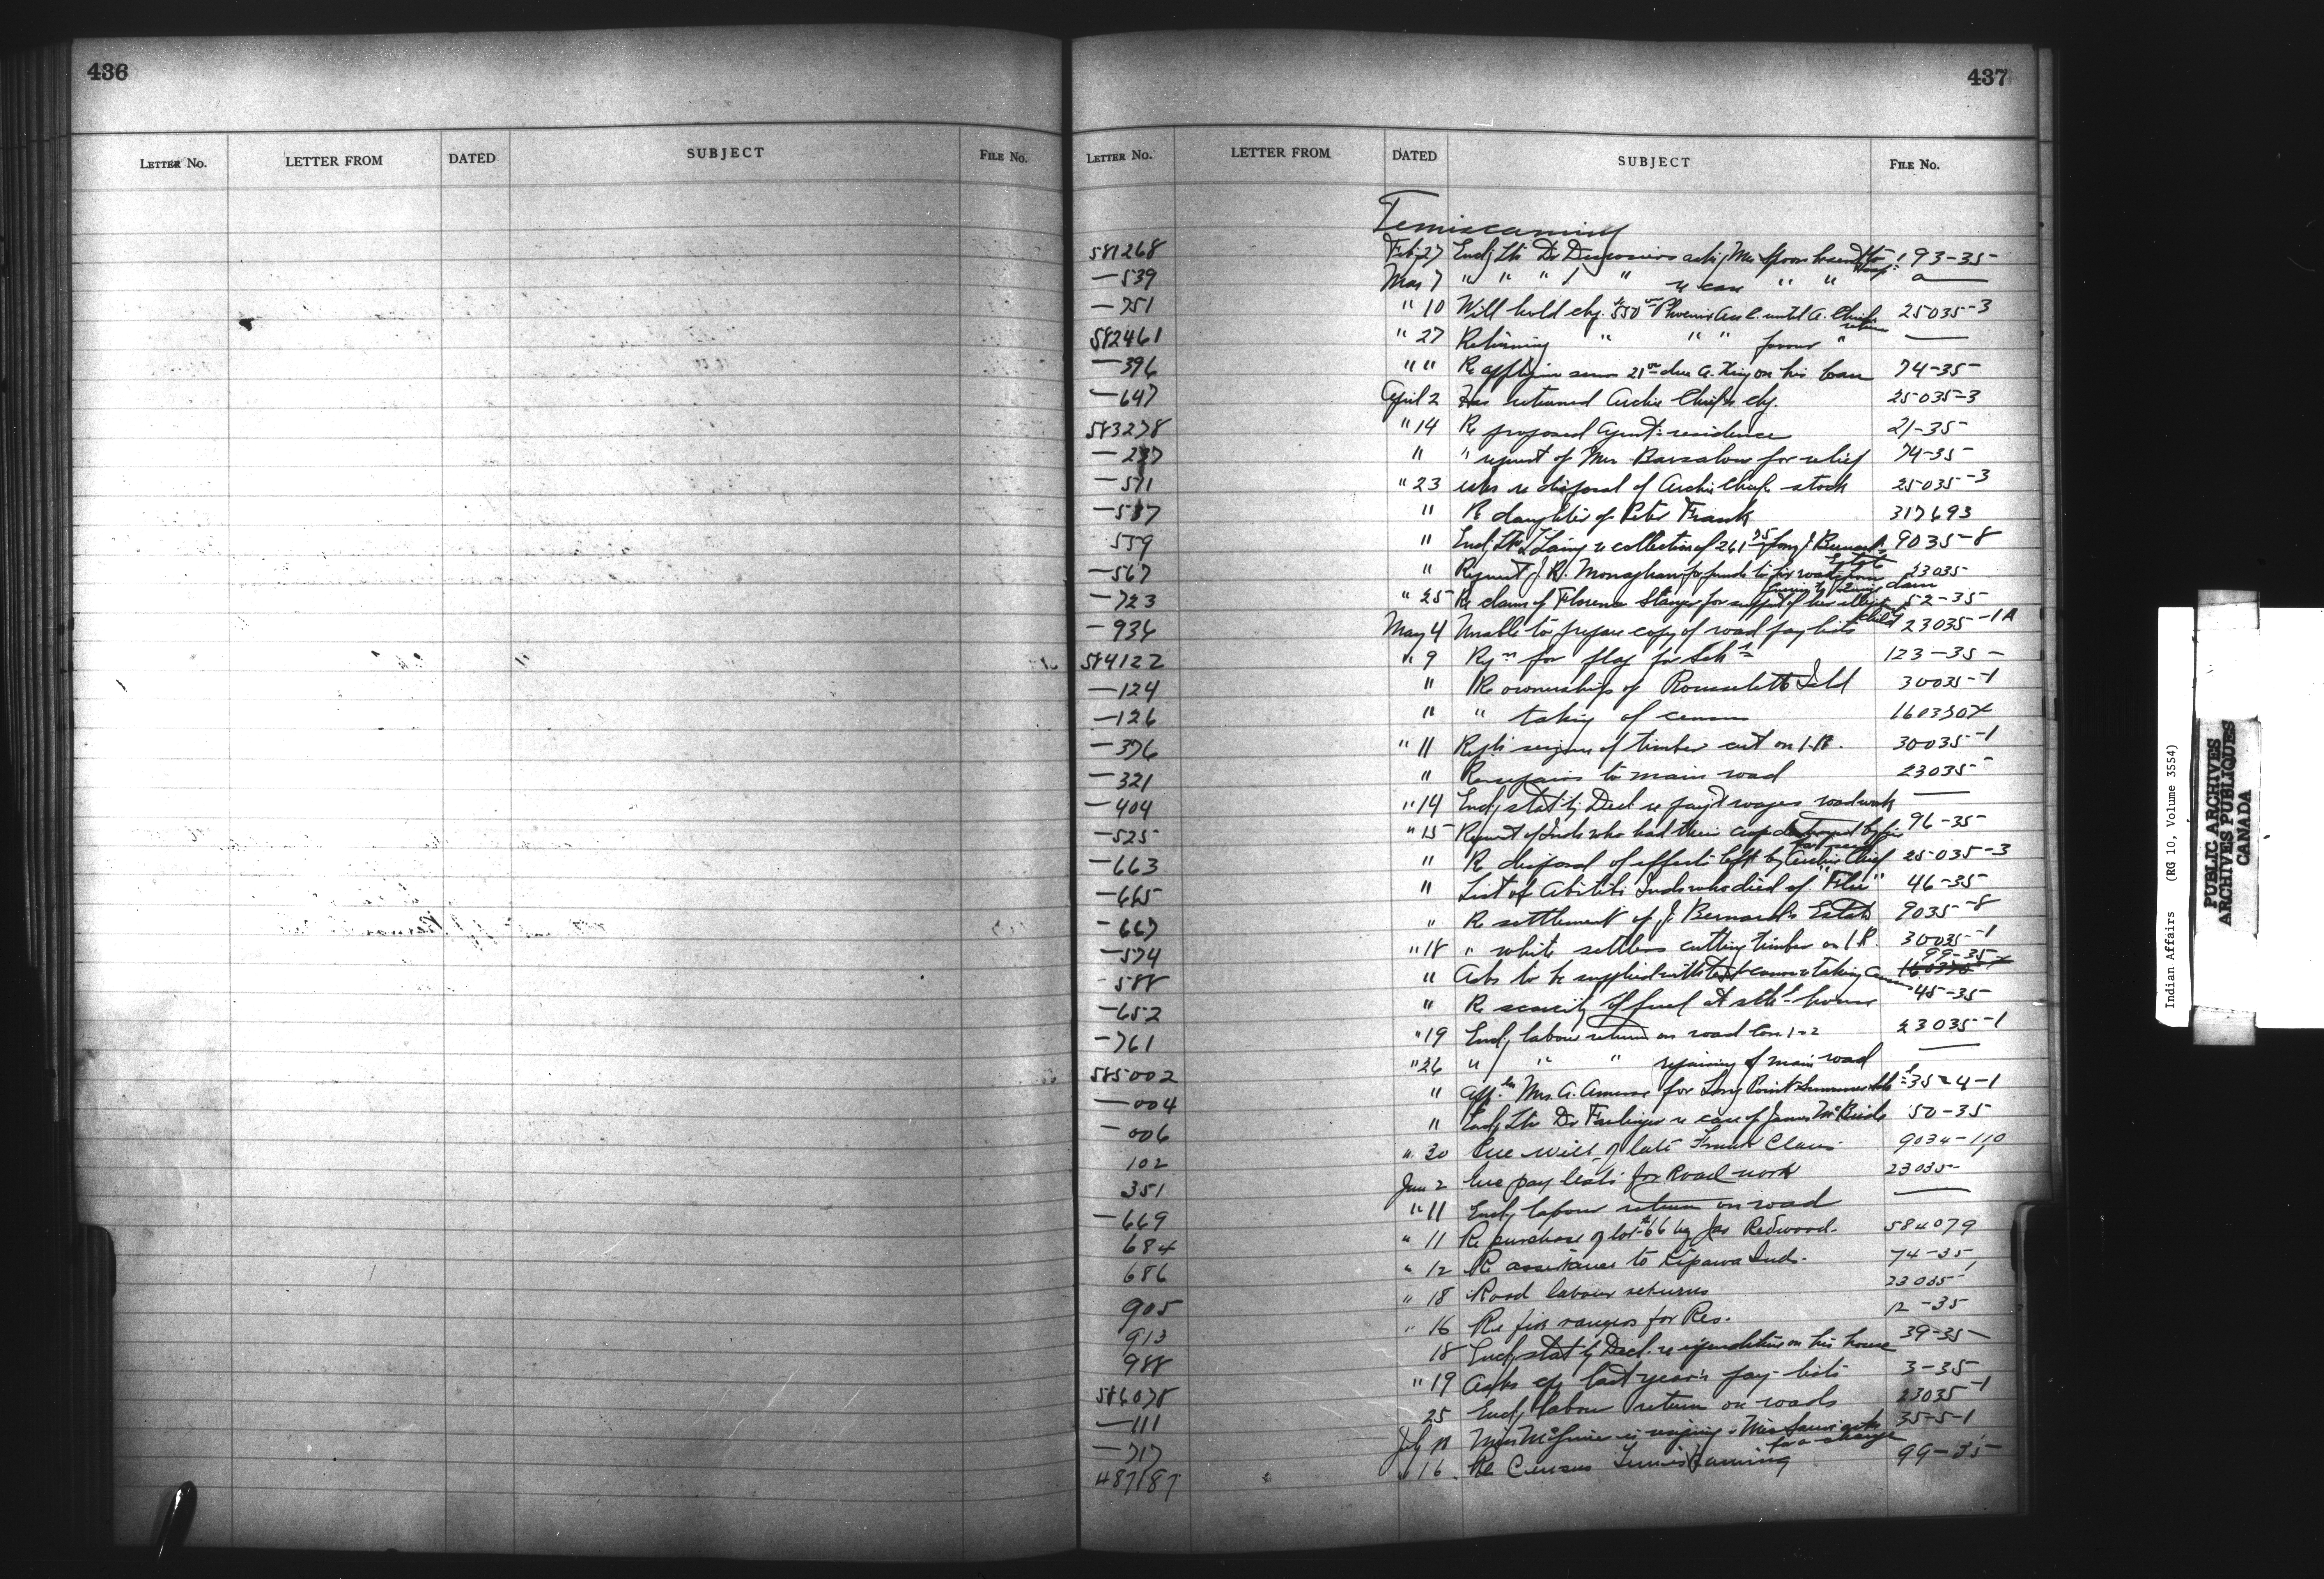 436
LETTER No. LETTER FROM DATED SUBJECT FILE No.
437
LETTER No. LETTER FROM DATED SUBJECT FILE No.
Temiscaming
581268 Feb 27 Encl, Ltr Dr 193-35
—539 Mar 7 " " " " re case " " a—
—751 " 10 Will hold chq. until A. Chief 25035-3
582461 " 27 " " " "
—396 " " Re applying sum 21 due A. King on his loan 74-35
—647 April 2 Has returned Archie Chief's chq. 25035-3
583278 " 14 Re proposed Agent's residence 21-35
—237 " " request of Mrs for relief 74-35
—571 " 23 re disposal of Archie Chief's stock 25035-3
—517 " Re daughter of Peter Frank 317693
559 " Encl, Ltr re collection of 261 75 from J. Bernard Estate 9035-8
—567 " Request J. R. Monaghan for funds to fix road from 23035
—723 " 25 Re claim of Florence for support of her child 52-35
—936 May 4 Unable to prepare copy of road pay lists 23035-1A
584122 " 9 for flag for Sch 123-35
—124 " Re ownership of Isld 30035-1
—126 " " taking of census
—376 " 11 seizure of timber cut on I.R. 30035-1
—321 " Re repairs to main road 23035
—404 " 14 Encl, stat'y Decl. re pay't wages road work —
—525 " 15 Request of Inds who had their crop destroyed by fire 96-35
—663 " Re disposal of effects left by Archie Chief 25035-3
—665 " List of Abitibi Inds who died of "Flu" 46-35
—667 " Re settlement of J. Bernard's Estate 9035-8
—574 " 18 " white settlers cutting timber on I.R. 30035-1
—588 " Asks to be supplied with taking 99-35
—652 " Re scarcity of fuel at sch house 45-35
—761 " 19 Encl, labour return on road Con 1-2 23035-1
585002 " 26 " " " repairing of main road —
—004 " Mrs. A. for Long Point Summer 35-4-1
—006 " Encl, Ltr Dr re case of James McBride 50-35
102 " 30 will of late Frank 9034-110
351 Jun 2 Inc pay lists for Road work 23035
—669 " 11 Encl, labour return on road —
684 " 11 Re purchase of lot 66 by Jas Redwood. 584079
686 " 12 Re assistance to Kipawa Inds. 74-35
905 " 18 Road labour returns 23035-1
913 " 16 Re fire rangers for Res. 12-35
988 18 Encl, stat'y Decl. re expenditure on his house 39-35
586078 " 19 Asks cp last year's pay-lists 3-35
—111 25 Encl, labour return on roads 23035-1
—717 July 11 Miss McGuire is resigning & Miss asks for a change 35-5-1
487187 " 16 Re Census Temiskaming 99-35
Indian Affairs (RG 10, Volume 3554)
PUBLIC ARCHIVES
ARCHIVES PUBLIQUES
CANADA